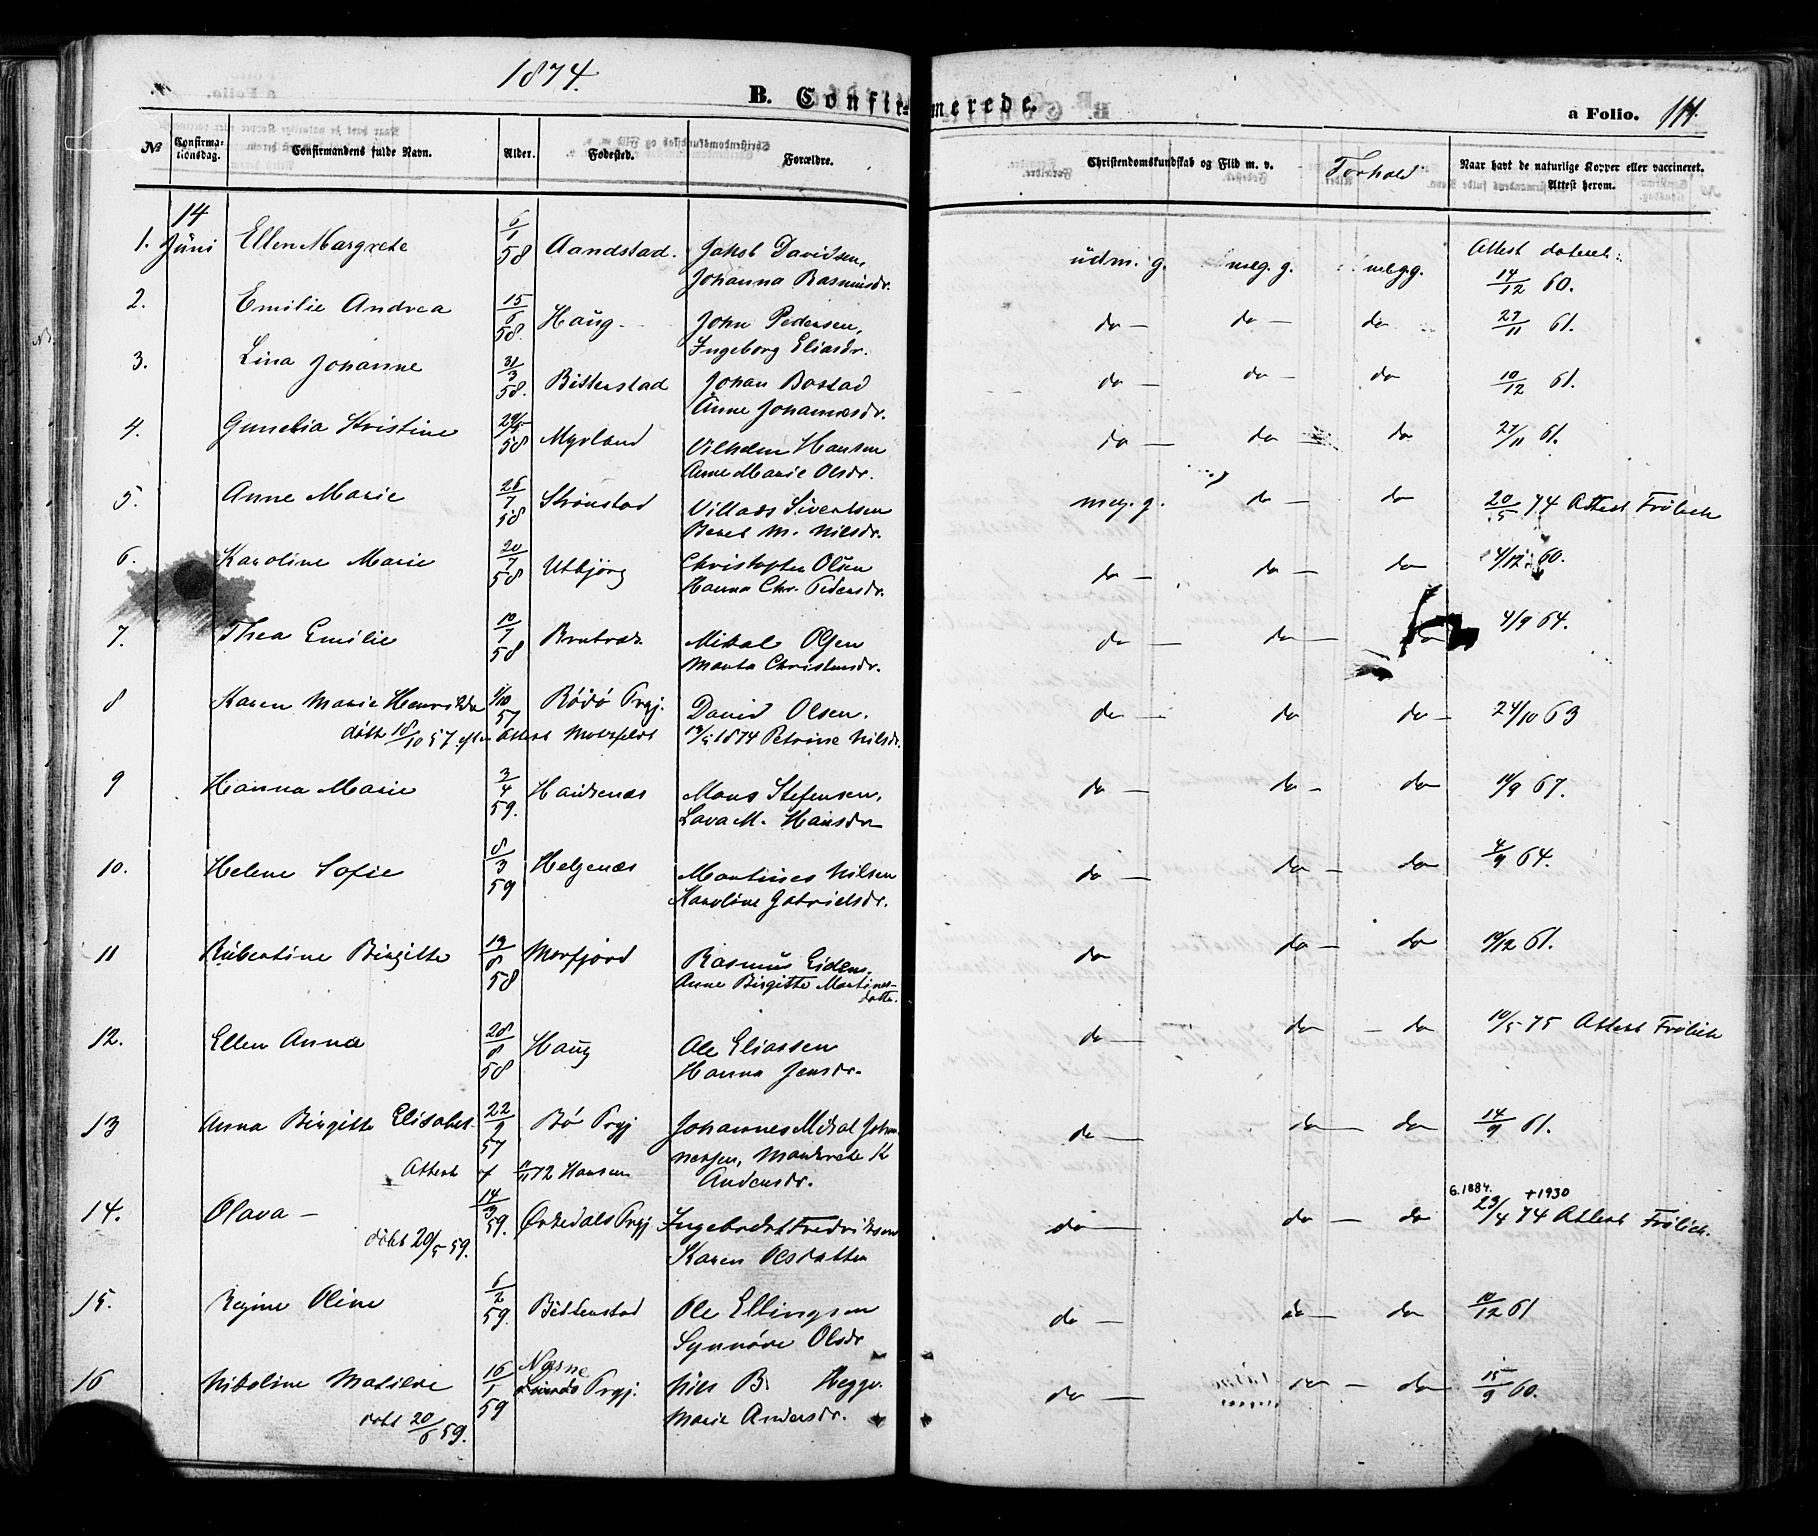 1874.
B. Confirmerede.
a Folio. 111.
No
Confirma-
tionsdag.
Confirmandens fulde Navn.
Alder.
Fødested.
Forældre.
Christendomskundskab og Flid m. v.
Forhold
Naar havt de naturlige Kopper eller vaccineret.
Attest herom.
1. 14 Juni Ellen Margrete 6/1 58 Aandstad. Jakob Davidsen, udm. g. meg. g. meg. g. Attest dateret:
Johanna Rasmusdr. 14/12 60.
2. Emilie Andrea 15/6 58. Haug John Pedersen, do — do — do 27/11 61.
Ingeborg Eliasdr.
3. Lina Johanne 31/3 58. Bitterstad Johan Bostad do — do — do 10/12 61.
Anne Johannesdr.
4. Gunelia Kristine 29/5 58 Myrland Vilhelm Hansen do — do do 27/11 61.
Anne Marie Olsdr.
5. Anne Marie 26/7 58 Strønstad Villads Sivertsen meg. g. do — do 20/5 74 Attest Frølich
Beret M. Nilsdr.
6. Karoline Marie 20/7 58 Utbjørg Christopher Olsen do — do — do 4/12 60.
Hanna Chr. Pedersdr.
7. Thea Emilie 10/7 58 Mikal Olsen do — do — do 4/9 64.
Marta Christensdr.
8 Karen Marie 1/10 57 Rødø Prgj. David Olsen. do — do do — 24/10 63
døbt 18/10 57 efter Attest 1874 Petrine Nilsdr.
9 Hanna Marie 3/4 59. Haukenæs Mons Stefensen, do — do — do 14/9 67.
Lava M. Hansdr
10. Helene Sofie 8/3 59 Helgenæs Martines Nilsen do — do — do 4/9 64.
Karoline Gabrielsdr.
11 Rubertine Birgitte 19/8 58 Morfjord Rasmus do do — do 14/12 61.
Anne Birgitte Martines-
datte.
12. Ellen Anna 28/8 58 Haug Ole Eliassen do — do — do 10/5 75 Attest Frølich
Hanna Jensdr.
13 Anna Birgitte Elisabet. 22/9 57 Bø Prgj Johannes Mikal Johan- do — do — do 14/9 61.
nessen, K
Attest 72 Hansen Andersdr.
G. 1884. +1930
14. Olava — 14/3 59. Ørkedals Prgj Ingebrekt Fredriksen do — do — do 23/4 74 Attest Frølich.
døbt 29/5 59. Karen Olsdatter
15. Regine Oline 6/2 59. Bitterstad Ole Ellingsen do — do — do 10/12 61
Synnøve Olsdr
16 Nikoline Matilde 16/1 59 Næsne Prgj. Nils B. Hegge. do — do — do 15/9 60.
døbt 20/6 59. Marie Andersdr.